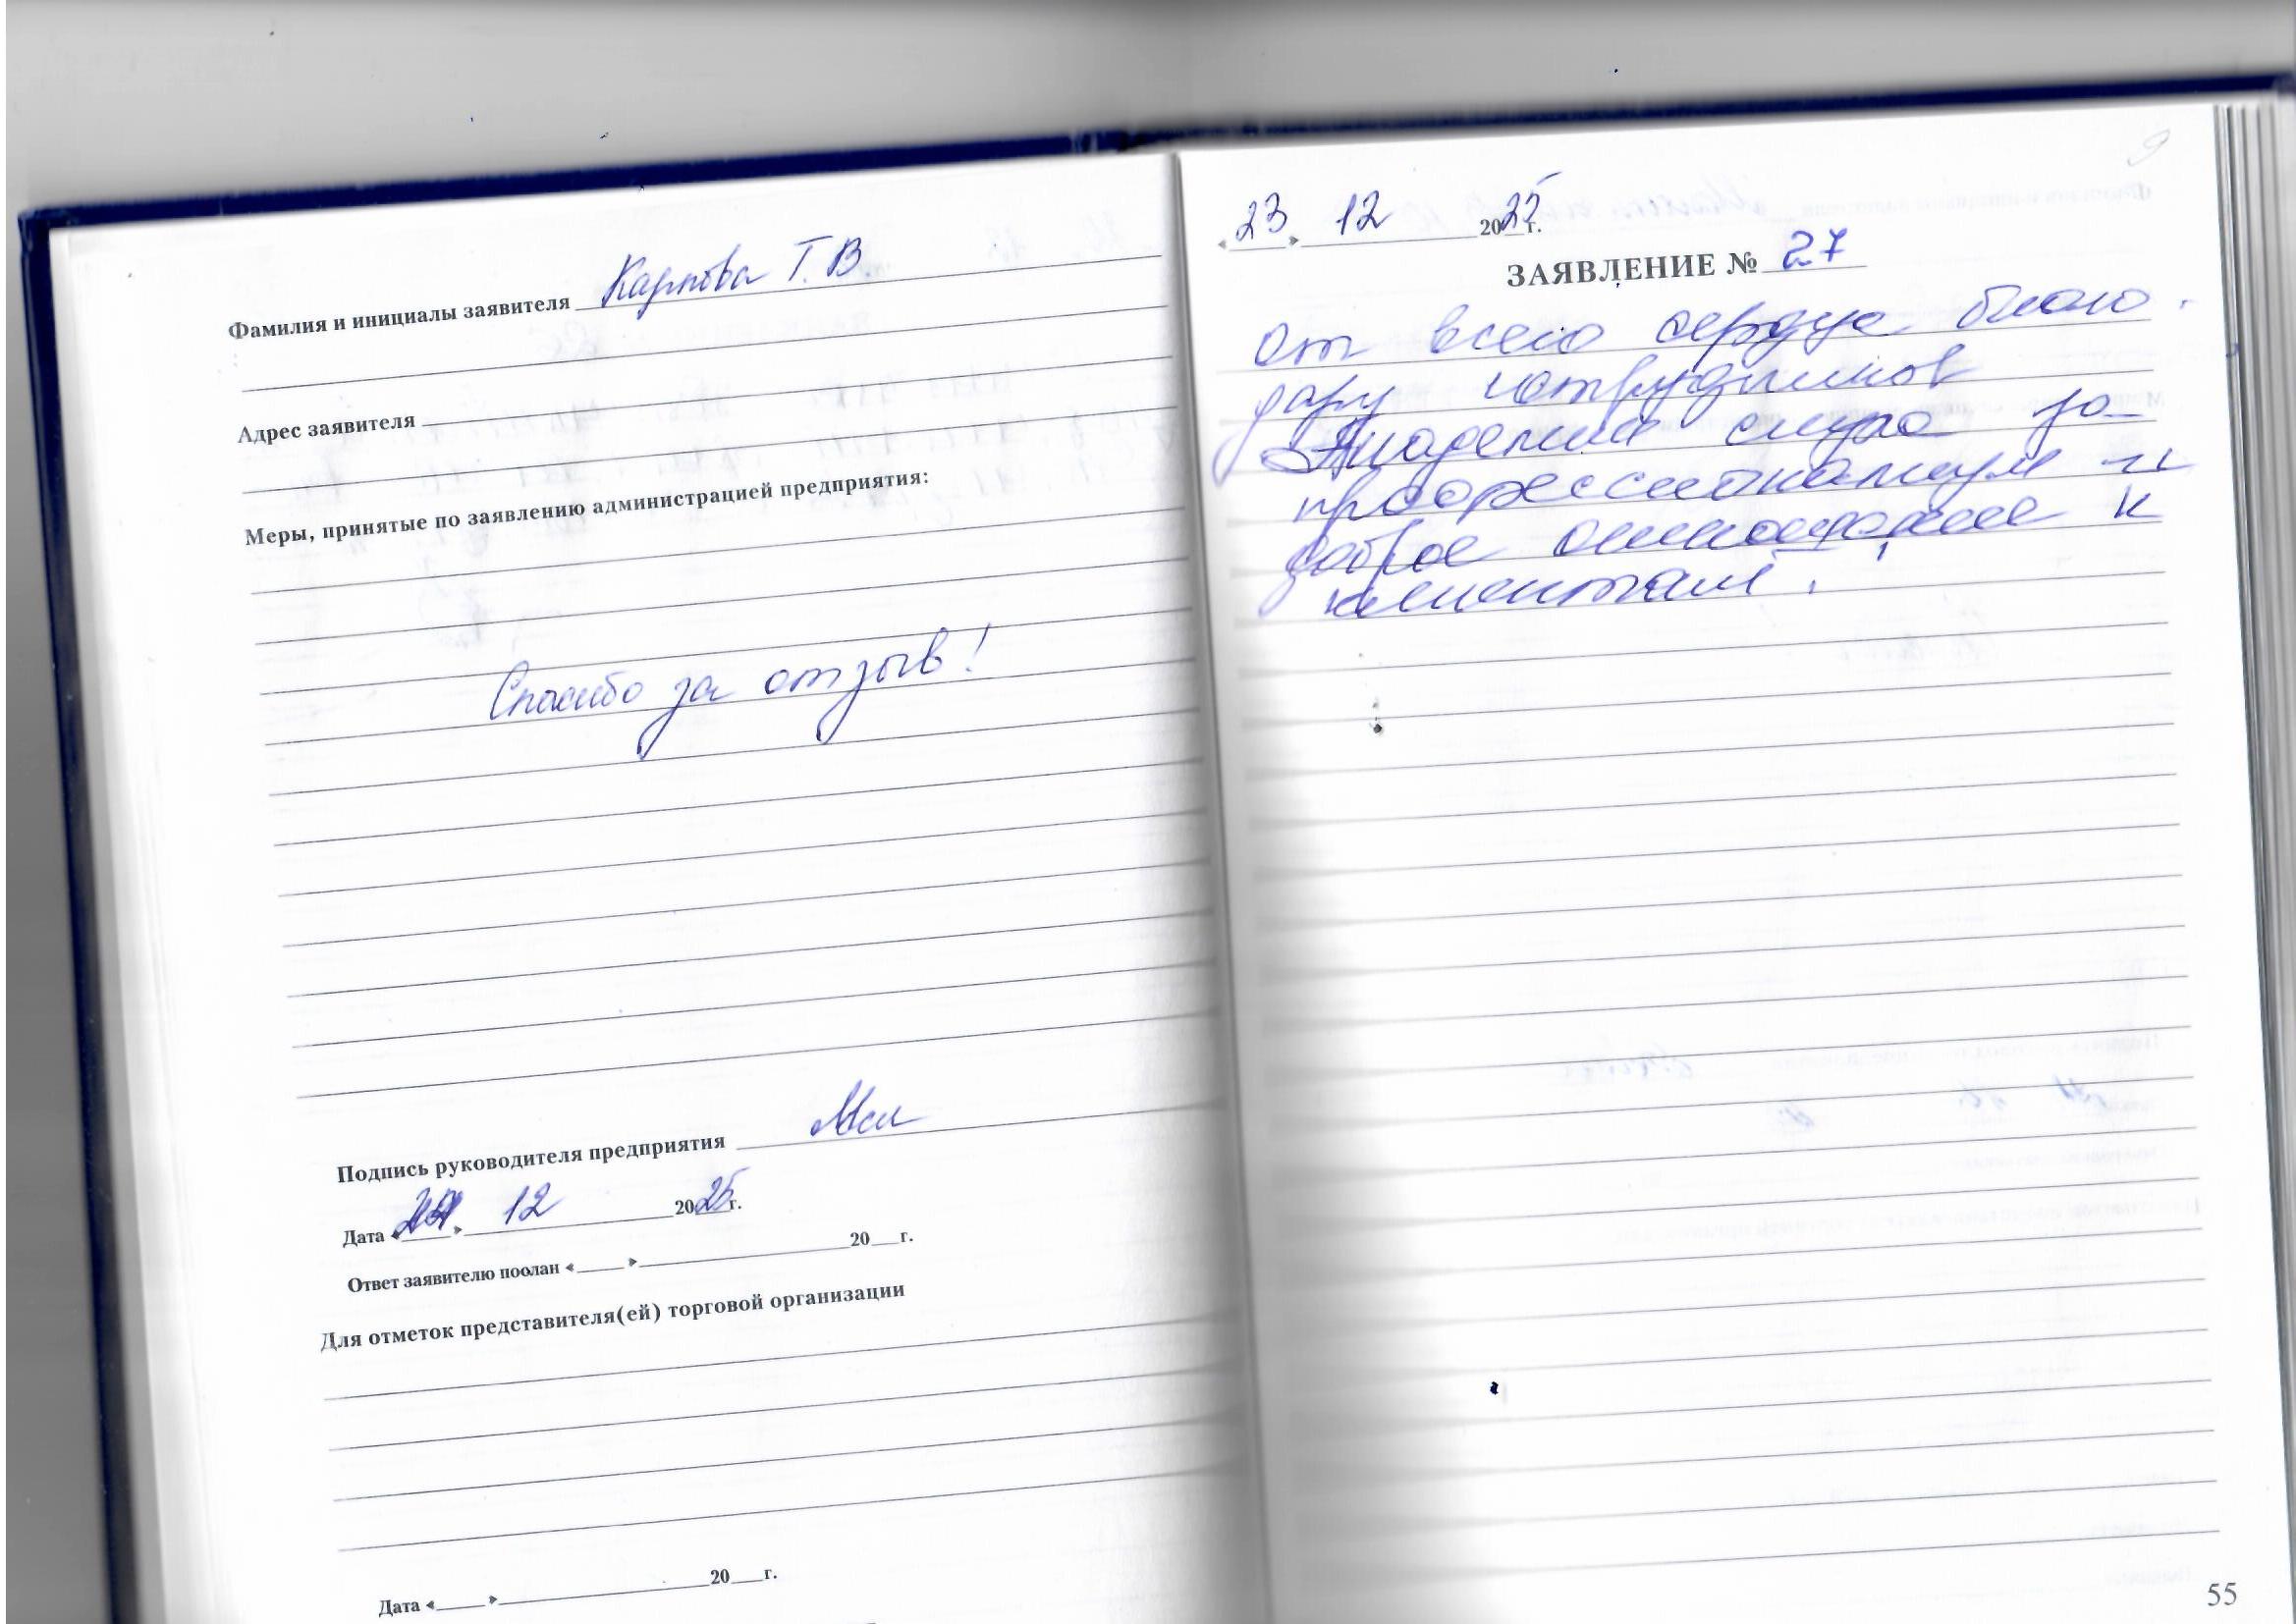 Фамилия и инициалы заявителя Карпова Т.В.
Адрес заявителя
Меры, принятые по заявлению администрацией предприятия:
Спасибо за отзыв!
Подпись руководителя предприятия
Дата « » 12 2025 г.
Ответ заявителю послан « » 20 г.
Для отметок представителя(ей) торговой организации
Дата « » 20 г.
9
«23» 12 2025 г.
ЗАЯВЛЕНИЕ № 27
От всего сердца благо
дарю сотрудников
Академии слуха за
профессионализм и
доброе отношение к
клиентам!
55